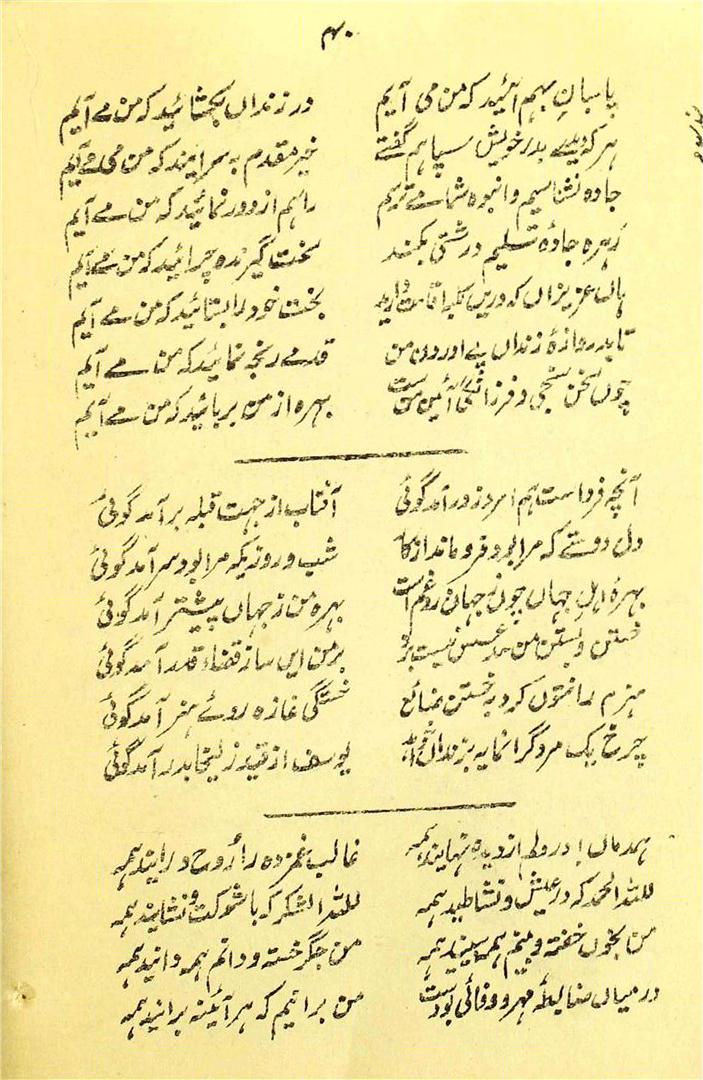 ۴۰
پاسباناں بہم آئید کہ من می آیم در زنداں بکشائید کہ من مے آیم
ہر کہ دیدے بدر خویش سپاہم گفتے خیر مقدم بہ سرایند کہ من می آیم
جادہ نشناسم و انبوہ شما مے ترسم راہم از دور نمائید کہ من مے آیم
رہرو جادۂ تسلیم درشتی نکند سخت گیرندہ چرائید کہ من مے آیم
ہاں عزیزاں کہ دریں کلبہ اقامت دارید بخت خود را بستائید کہ من مے آیم
تا بدروازۂ زنداں پے آوردن من قدمے رنجہ نمائید کہ من مے آیم
چوں سخن سنجی و فرزانگی آئین من است بہرہ از من بربائید کہ من مے آیم
آنچہ فرداست ہم امروز در آمد گوئی آفتاب از جہت قبلہ برآمد گوئی
دل دوستے کہ مرا بود فرو ماند از کار شب و روزیکہ مرا بود سرآمد گوئی
بہرۂ اہل جہاں چوں ز جہاں غم است بہرہ من ز جہاں پیشتر آمد گوئی
خستن و بستن من نیست برو بر من ایں ساز قضاء و قدر آمد گوئی
ہنرم را نتواں کرد بہ خستن ضائع خستگی غازہ روئے ہنر آمد گوئی
چرخ یک مرد گرانمایہ بزنداں خواہد یوسف از قید زلیخا بدر آمد گوئی
ہمدماں! در دلم از دیدہ نہانید ہمہ غالب غمزدہ را روح و روانید ہمہ
للہ الحمد کہ در عیش و نشاطید ہمہ للہ الشکر کہ با شوکت و شانید ہمہ
من بخوں خفتہ و بینم ہمہ بینید ہمہ من جگر خستہ و دانم ہمہ دانید ہمہ
در میاں ضابطۂ مہر و وفائی بودست من برانیم کہ ہر آئینہ برانید ہمہ